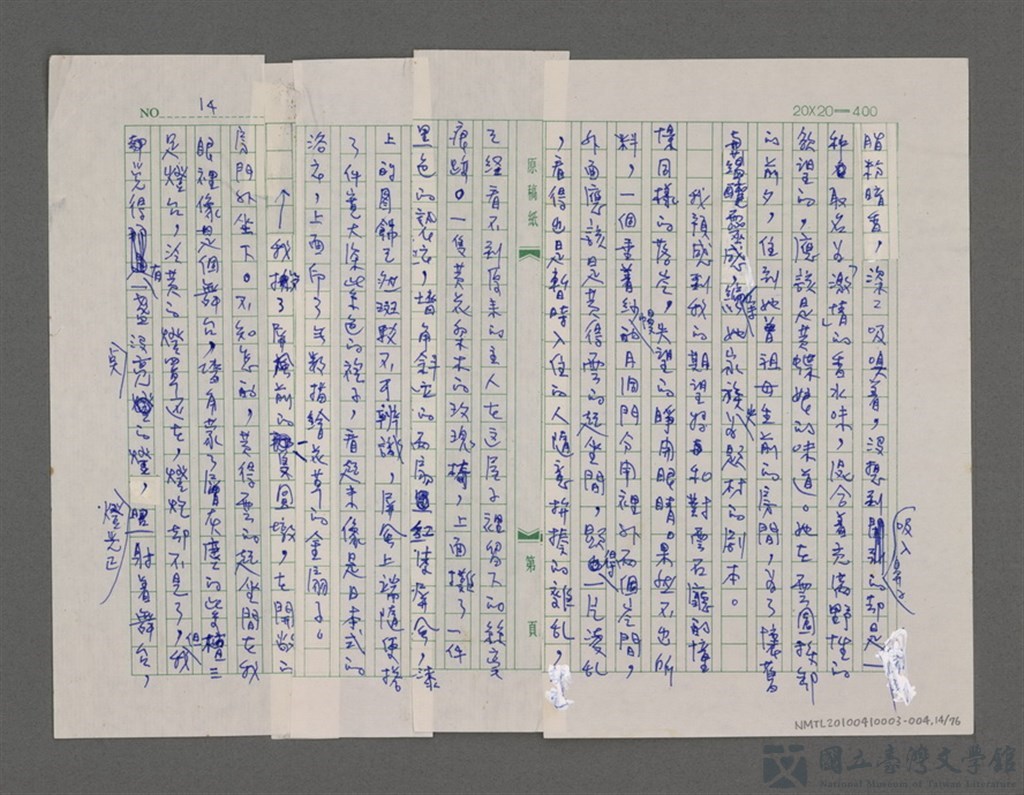 NO. 14
20X20=400
脂粉暗香，深深吸嗅着，沒想到吸入鼻子的却是一
種取名為「激情」的香水味，混合着充滿野性的
欲望的，應該是黃蝶娘的味道。她在雲園拆卸
的前夕，住到她曾祖母生前的房間，為了讓舊
靈感，編她家族史為題材的劇本。
我預感到我的期望將和對雲石廳的憧
憬同樣的落空，失望的睜開眼睛。果然不出所
料，一個垂着紗幔的月洞門分開裡外兩個空間，
外面應該是黃得雲的起坐間，顯得一片凌亂
，看得出是暫時入住的人隨意拼擠的雜亂，
原稿紙
第 頁
已經看不到原來的主人在這屋子裡留下的絲毫
痕跡。一隻黃花梨木的玫瑰椅，上面攤了一件
黑色的褻衣，墻角斜立的兩扇紅漆屏風，漆
上的圖飾已斑駁不可辨識，屏風上端隨便搭
了件寬大深紫色的袍子，看起來像是日本式的
浴衣，上面印了無數描繪花草的金扇子。
我搬了屏風前的一隻圓墩，在開敞的
房門外坐下。不知怎的，黃得雲的起坐間在我
眼裡像是個舞台，牆角蒙了層灰塵的紫檀三
足燈台，泛黃的燈罩還在，燈炮却不見了，但我
覺得有一盞沒亮的燈，燈光正照射着舞台，
NMTL20100410003-004.14/76
國立臺灣文學館
National Museum of Taiwan Literature